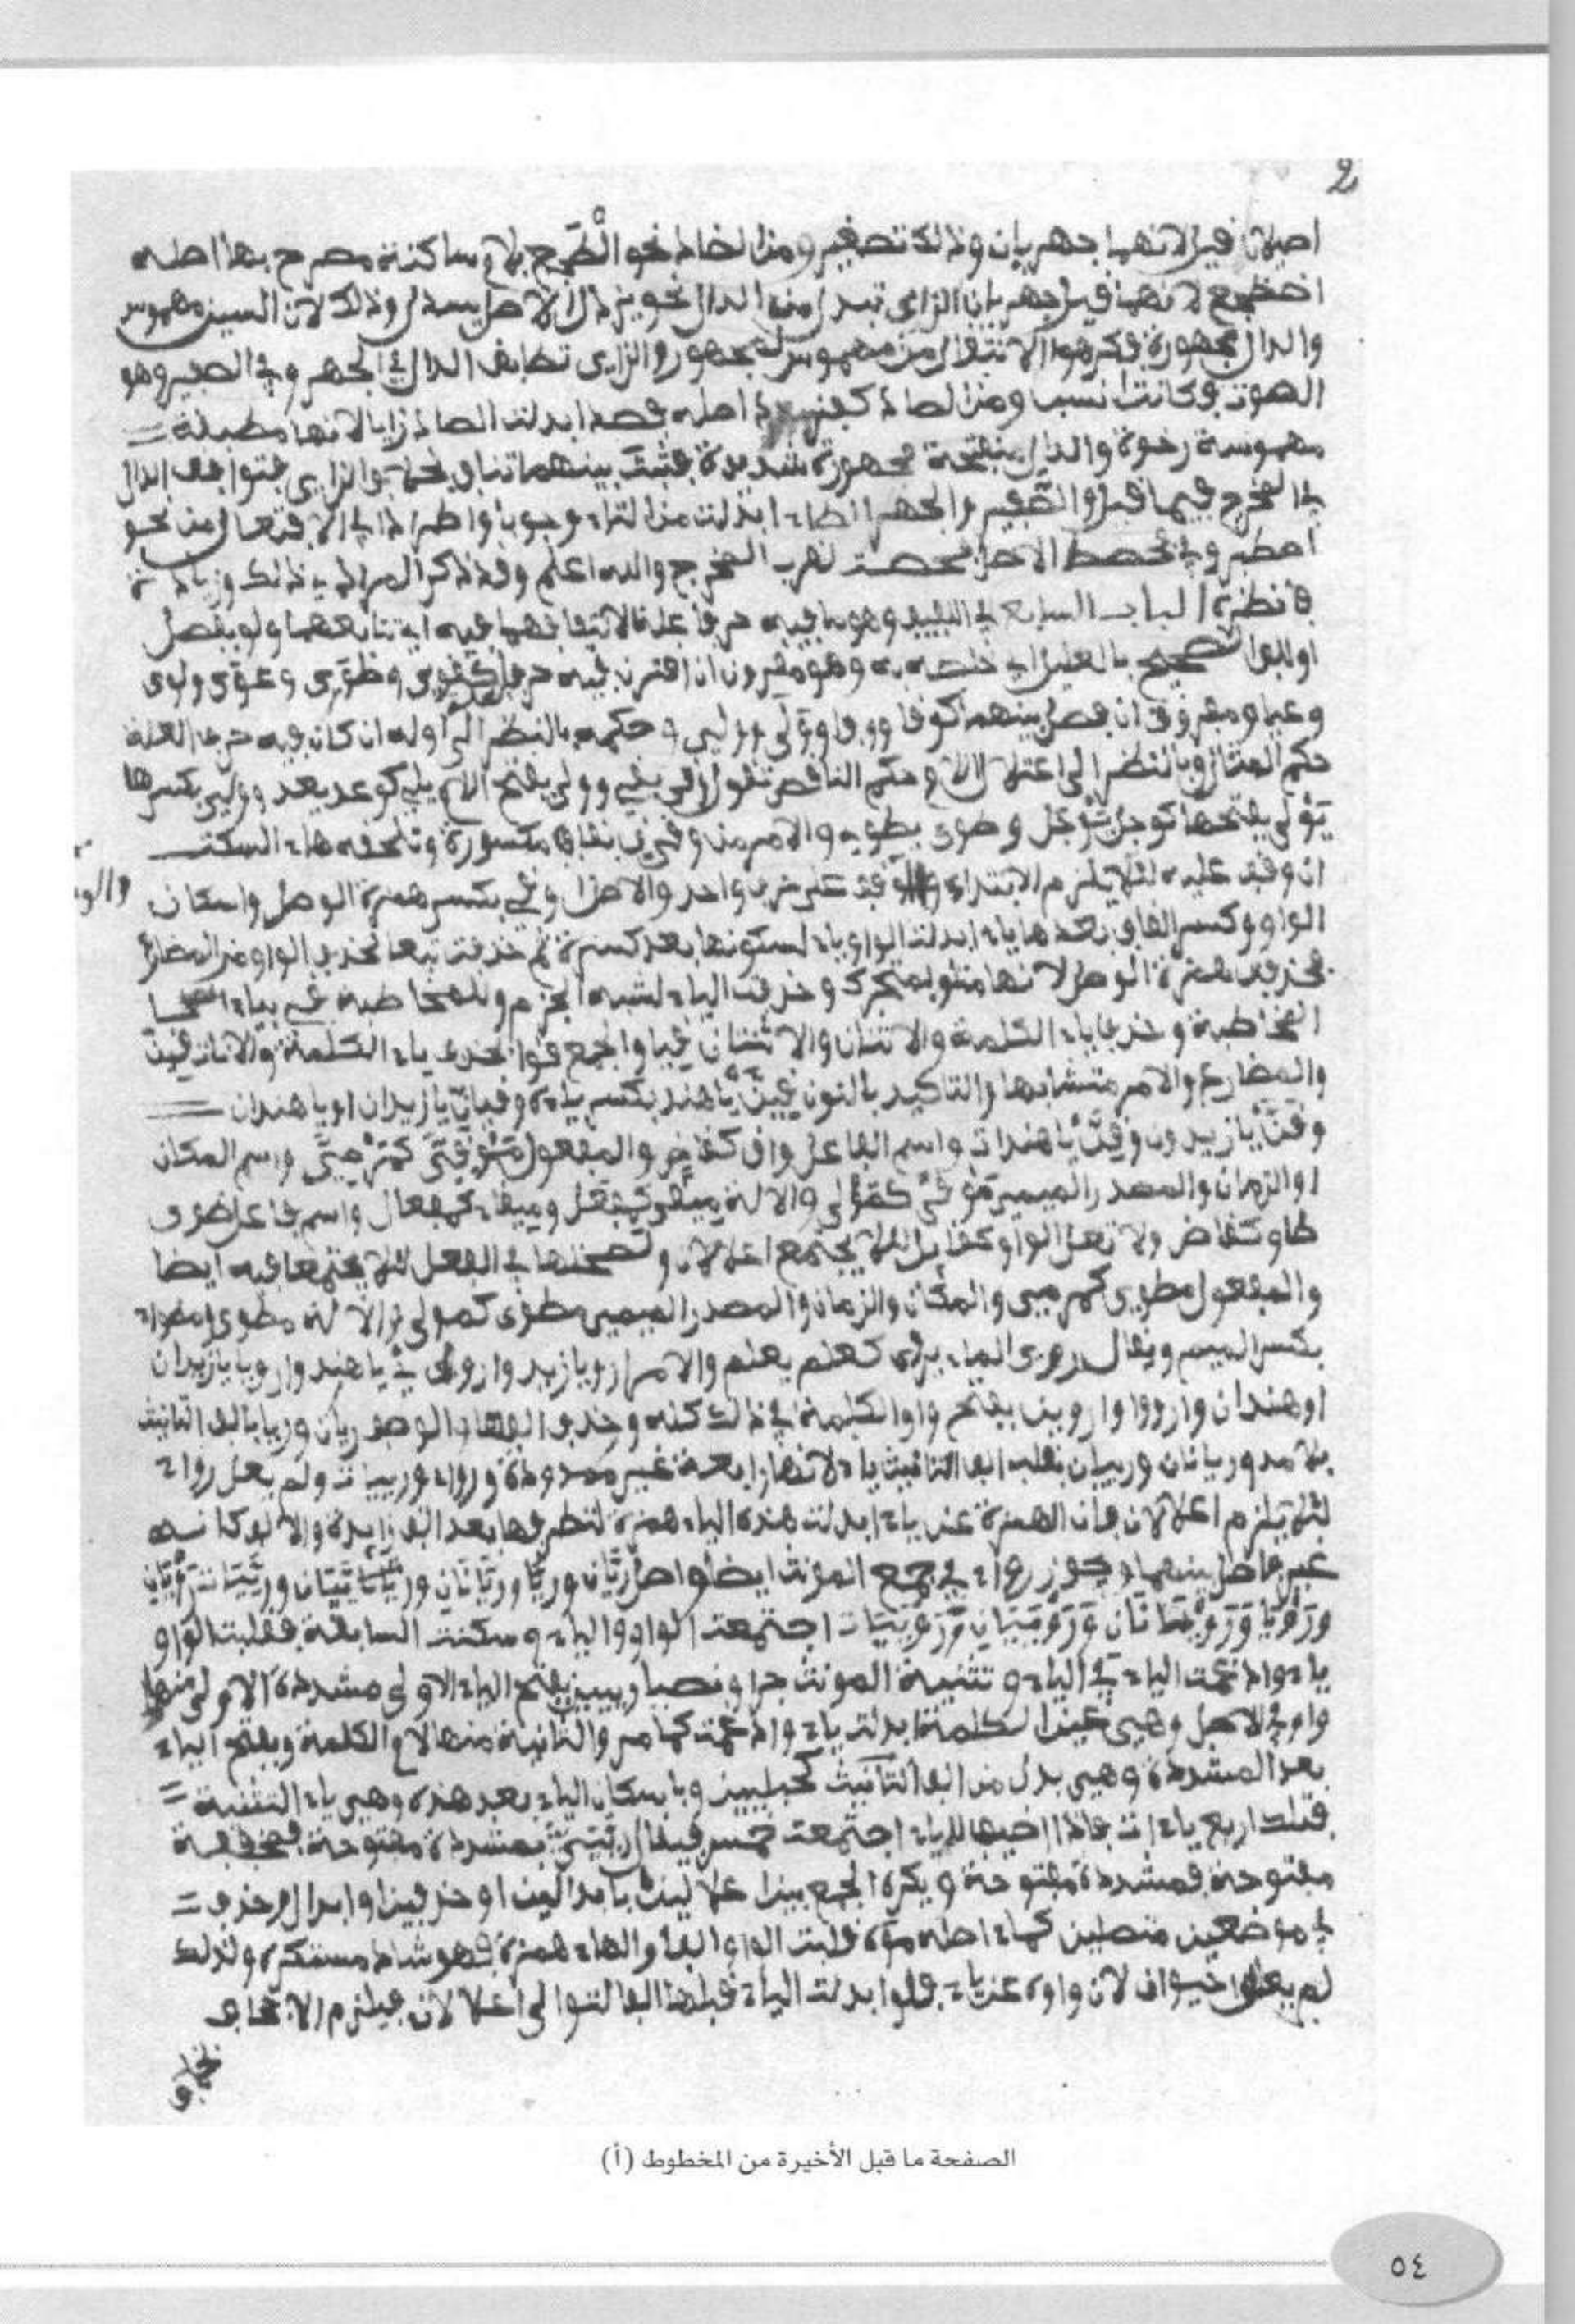 2
اصيلان فيل لانهما جهريان وذلك تصغير ومن الضاد نحو الطجع بلام ساكنة مصرح بها اصله
اضطجع لانهما فيل جهريان الزاي تبدل من الدال نحو يزدل الاصل يسدل وذلك لان السين مهموس
والدال مجهورة فكرهوا الانتقال من مهموس لمجهور والزاى توافق الدال في الجهر وفي الصفير وهو
الصوت فكانت انسب ومن الصاد اصله فصد ابدلت الصاد زايا لانها مطبقة
مهموسة رخوة والدال منفتحة مجهورة شديدة فثبت بينهما تناف والزاى فتوافق الدال
في المخرج والجهر الطاء ابدلت من التاء وجوبا واطرادا في الافتعال من نحو
اصطبر وفي الاصل لقرب المخرج والله اعلم وقد ذكر المرادي ذلك وزيادة
فانظره الباب السابع في اللفيف وهو ما فيه حرفا علة لالتفافهما فيه اي تتابعهما ولو بفصل
الصحيح بالعليل اي خلطه به وهو مقرون ان اقترن فيه حرفا كقوى وطوى وعوى ولوى
ومفروق ان فصل بينهما كوفا ووفا وولي وحكمه بالنظر الى اوله ان كان فيه حرف العلة
حكم المثال وبالنظر الى اعتلال اللام حكم الناقص تقول وقى يقي وولى بفتح اللام يلي كوعد يعد وولي بكسرها
يولى بفتحها كوجل يوجل وطوى يطويه والامر من وقى ق بقاف مكسورة وتلحقه هاء السكت
ان وقف عليه لئلا يلزم الابتداء والوقف على حرف واحد والاصل اوقي بكسر همزة الوصل واسكان
الواو وكسر القاف بعدها ياء ابدلت الواو ياء لسكونها بعد كسرة ثم حذفت تبعا لحذف الواو من المضارع
فحذفت همزة الوصل لانها متلو بمتحرك وحذفت الياء لشبه الجزم وللمخاطبة قي بياء
المخاطبة وحذف ياء الكلمة والاثنان والاثنتان قيا والجمع قوا بحذف ياء الكلمة والاناث قين
والمضارع والامر متشابها والتاكيد بالنون قين يا هند بكسر ياء وقيان يا زيدان او يا هندان
وقن يا زيدون وقين يا هندات واسم الفاعل واق كقاض والمفعول موقي كمرمي واسم المكان
او الزمان والمصدر الميمي موقى كمولى والالة ميقى كمفعل وميقاء كمفعال واسم فاعل طوى
طاو كقاض ولا تعل الواو كقايل لئلا يجتمع اعلالان ولصحتها في الفعل لئلا يجتمعا فيه ايضا
والمفعول مطوي كمرمي والمكان والزمان والمصدر الميمي مطوى كمولى والالة مطوى ومطواء
بكسر الميم ويقال روى الماء يروى كعلم يعلم والامر ارو يا زيد واروي يا هند وارويا يا زيدان
او هندان وارووا واروين بفتح واو الكلمة في ذلك كله وحذف والوصف ريان وريا بالف التانيث
بلا مد وريانان ورييان بقلب الف التانيث ياء لانها رابعة غير ممدودة ورواء ورييات ولم يعل رواء
لئلا يلزم اعلالان فان الهمزة عن ياء ابدلت هذه الياء همزة لتطرفها بعد الف زايدة والالف كانه
غير فاصل بينهما ويجوز رواء في جمع المونث ايضا واصل ريان وريا وريانان ورييان ورييات رويان
ورويا ورويانان ورويان ورويات اجتمعت الواو والياء وسكنت السابقة فقلبت الواو
ياء وادغمت الياء في الياء وتثنية المونث جرا ونصبا رييين بفتح الياء الاولى مشددة الاولى منها
واو في الاصل وهي عين الكلمة ابدلت ياء وادغمت كما مر والثانية منها لام الكلمة وبفتح الياء
بعد المشددة وهي بدل من الف التانيث كحبليين وباسكان الياء بعد هذه وهي ياء التثنية
فتلك اربع ياءات فاذا اضيف للياء اجتمعت خمس فيقال رييي بمشددة مفتوحة فمخففة
مفتوحة فمشددة مفتوحة ويكره الجمع بين اعلالين بابدالين او حذفين او ابدال وحذف
في موضعين متصلين كماء اصله موه قلبت الواو الفا والهاء همزة فهو شاذ مستكره ولذلك
لم حيوان لان واوه عن ياء فلو ابدلت الياء قبلها الفا لتوالى اعلالان فيلزم الاجحاف
بخلاف
والو
الصفحة ما قبل الأخيرة من المخطوط (أ)
٥٤